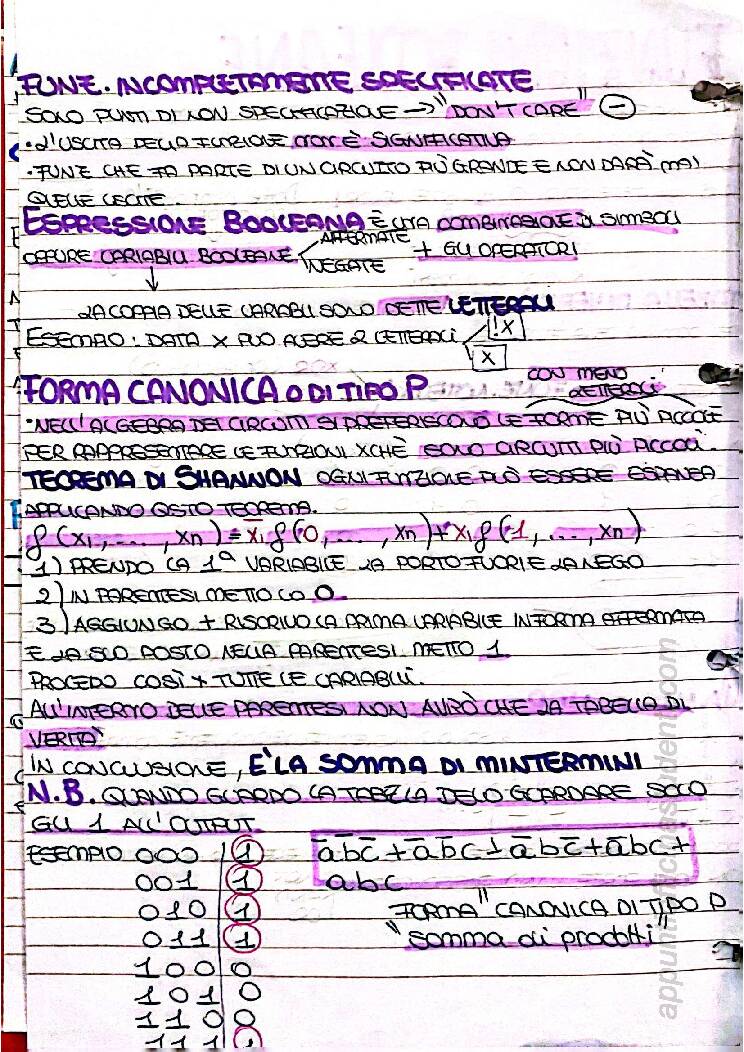 FUNZ. INCOMPLETAMENTE SPECIFICATE
SONO PUNTI DI NON SPECIFICAZIONE → "DON'T CARE" (−)
• L'USCITA DELLA FUNZIONE NON È SIGNIFICATIVA
• FUNZ CHE FA PARTE DI UN CIRCUITO PIÙ GRANDE E NON DARÀ MAI
QUELLE LECITE.
ESPRESSIONE BOOLEANA È UNA COMBINAZIONE DI SIMBOLI
OPPURE VARIABILI BOOLEANE AFFERMATE NEGATE + GLI OPERATORI
↓
LA COPPIA DELLE VARIABILI SONO DETTE LETTERALI
ESEMPIO: DATA X PUÒ AVERE 2 LETTERALI !X
X
FORMA CANONICA O DI TIPO P CON MENO LETTERALI
• NELL'ALGEBRA DEI CIRCUITI SI PREFERISCONO LE FORME PIÙ PICCOLE
PER RAPPRESENTARE LE FUNZIONI XCHÈ SONO CIRCUITI PIÙ PICCOLI.
TEOREMA DI SHANNON OGNI FUNZIONE PUÒ ESSERE ESPANSA
APPLICANDO QSTO TEOREMA.
f(x₁, ...., xn) = x̅₁ f(0, ...., xn) + x₁ f(1, ...., xn)
1) PRENDO LA 1ª VARIABILE LA PORTO FUORI E LA NEGO
2) IN PARENTESI METTO LO 0
3) AGGIUNGO + RISCRIVO LA PRIMA VARIABILE IN FORMA AFFERMATA
E AL SUO POSTO NELLA PARENTESI METTO 1
PROCEDO COSÌ X TUTTE LE VARIABILI.
ALL'INTERNO DELLE PARENTESI NON AVRÒ CHE LA TABELLA DI
VERITÀ
IN CONCLUSIONE, È LA SOMMA DI MINTERMINI
N.B. QUANDO GUARDO LA TABELLA DEVO GUARDARE SOLO
GLI 1 ALL'OUTPUT
ESEMPIO 000 | 1 a̅b̅c̅ + a̅b̅c + a̅bc̅ + a̅bc +
001 | 1 abc
010 | 1 FORMA CANONICA DI TIPO P
011 | 1 "somma di prodotti"
100 | 0
101 | 0
110 | 0
111 | 1
appuntificiostudent.com